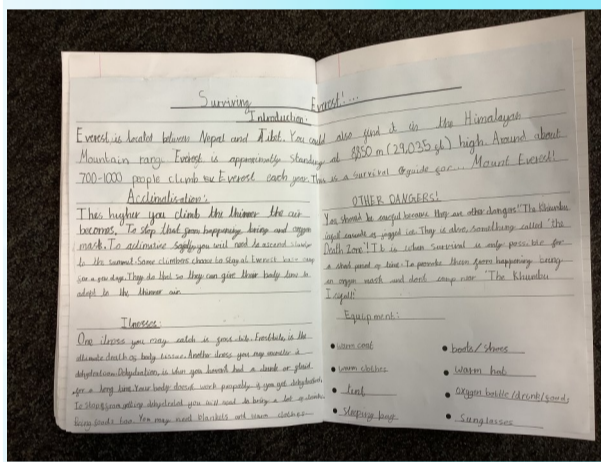 Surviving Everest!...
Introduction:
Everest is locatet between Nepal and Tibet. You could also find it in the Himalayan
Mountain rang. Everest is approximatly standing at 8850 m (29,035 ft) high. Around about
700-1000 people climb Everest each year. This is a survival guide for... Mount Everest!
Acclimatisation:
The higher you climb the thinner the air
becomes. To stop that from happening bring and oxygen
mask. To aclimatise you will need to ascend
to the summit. Some climbers choose to stay at Everest base camp
for a few days. They do that so they can give their body time to
adapt to the thinner air.
Ilnesses:
One ilness you may catch is frost bite. Frostbite, is the
death of body tissue. Another ilness you may is
dehydration. Dehydration, is when you havent had a drink or
for a long time. Your body doesnt work properly if you get dehydrated.
To stop from getting dehydrated you will need to bring a lot of
You may need blankets and warm clothes
OTHER DANGERS!
You should be careful because they are other dangers! "The Khumbu
icefall" jagged ice. They is also, something called 'the
Death Zone'! It is when survival is only possible for
a short period of time. To them from happening bring
an oxygen mask and dont camp near "The Khumbu
Equipment:
• warm coat
• warm clothes
• tent
• sleeping bag
• boots/shoes
• Warm hat
• oxygen bottle/drink/foods
• Sunglasses